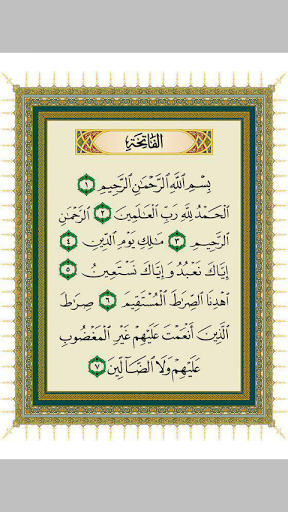 الفَاتِحَةِ
بِسْمِ اللَّهِ الرَّحْمَٰنِ الرَّحِيمِ ١
الْحَمْدُ لِلَّهِ رَبِّ الْعَالَمِينَ ٢ الرَّحْمَٰنِ
الرَّحِيمِ ٣ مَالِكِ يَوْمِ الدِّينِ ٤
إِيَّاكَ نَعْبُدُ وَإِيَّاكَ نَسْتَعِينُ ٥
اهْدِنَا الصِّرَاطَ الْمُسْتَقِيمَ ٦ صِرَاطَ
الَّذِينَ أَنْعَمْتَ عَلَيْهِمْ غَيْرِ الْمَغْضُوبِ
عَلَيْهِمْ وَلَا الضَّالِّينَ ٧